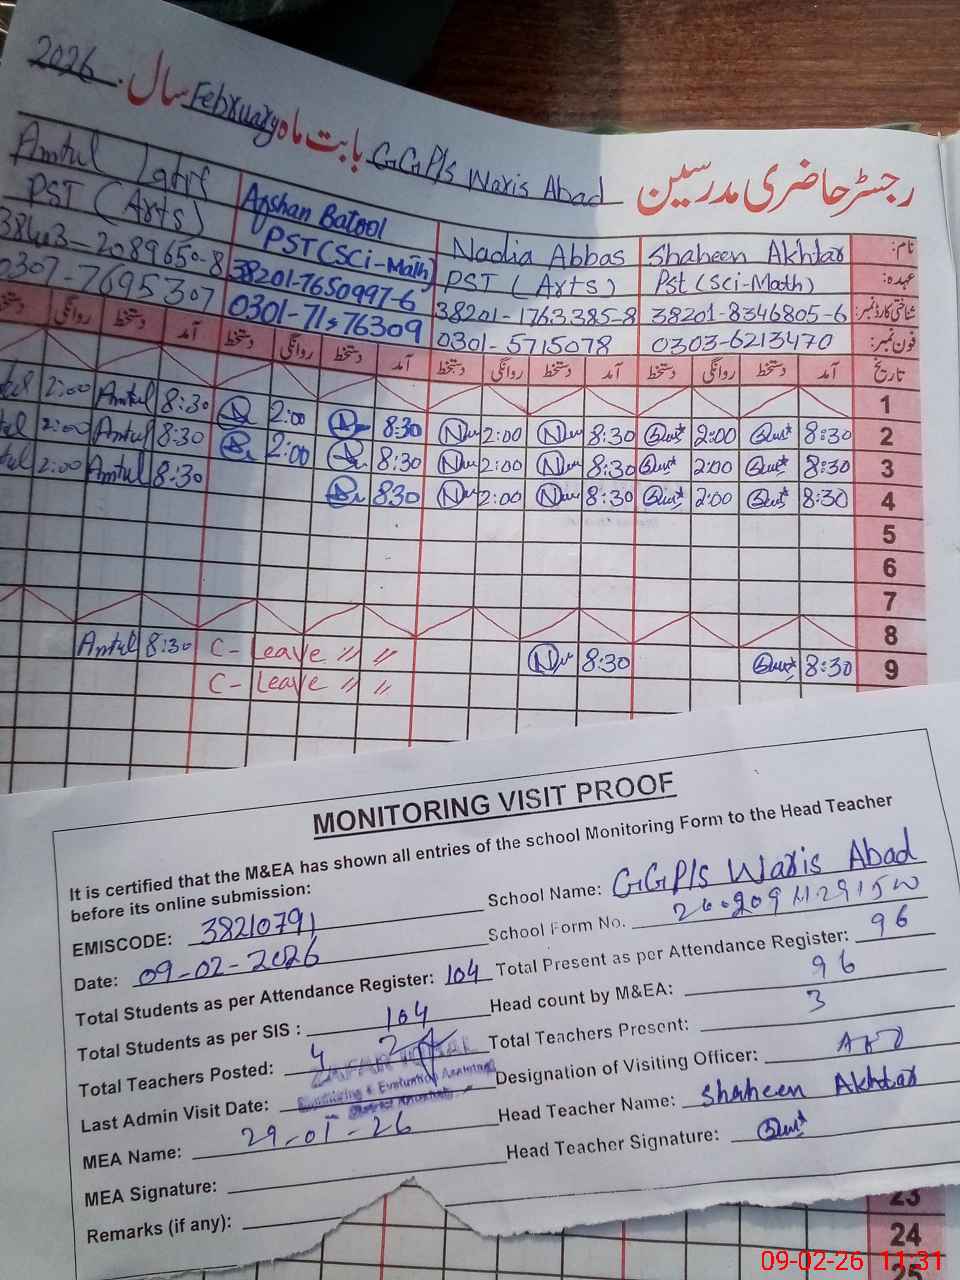 رجسٹر حاضری مدرسین GGP/s Waris Abad بابت ماہ February سال 2026
نام: Shaheen Akhtar Nadia Abbas Afshan Batool Amtul
عہدہ: Pst (Sci-Math) PST (Arts) PST (Sci-Math) PST (Arts)
شناختی کارڈ نمبر: 38201-8346805-6 38201-1763385-8 38201-7650997-6
فون نمبر: 0303-6213470 0301-5715078 0307-7695307
تاریخ آمد دستخط روانگی دستخط آمد دستخط روانگی دستخط آمد دستخط روانگی دستخط آمد دستخط روانگی دستخط
1
2 8:30 2:00 8:30 2:00 8:30 2:00 8:30 Amtul 2:00
3 8:30 2:00 8:30 2:00 8:30 2:00 8:30 Amtul 2:00
4 8:30 2:00 8:30 2:00 830 8:30 Amtul 2:00
5
6
7
8
9 8:30 8:30 C- Leave 〃 〃 8:30 Amtul
C- Leave 〃 〃
MONITORING VISIT PROOF
It is certified that the M&EA has shown all entries of the school Monitoring Form to the Head Teacher
before its online submission:
EMISCODE: 38210791 School Name: GGP/s Waris Abad
Date: 09-02-2026 School Form No.
Total Students as per Attendance Register: 104 Total Present as per Attendance Register: 96
Total Students as per SIS : 104 Head count by M&EA: 96
Total Teachers Posted: 4 Total Teachers Present: 3
Last Admin Visit Date: 29-01-26 Designation of Visiting Officer:
ZAFAR IQBAL
Monitoring & Evaluation Assistant
MEA Name: Head Teacher Name: Shaheen Akhtar
MEA Signature: Head Teacher Signature:
Remarks (if any):
23
24
25
09-02-26 11:31